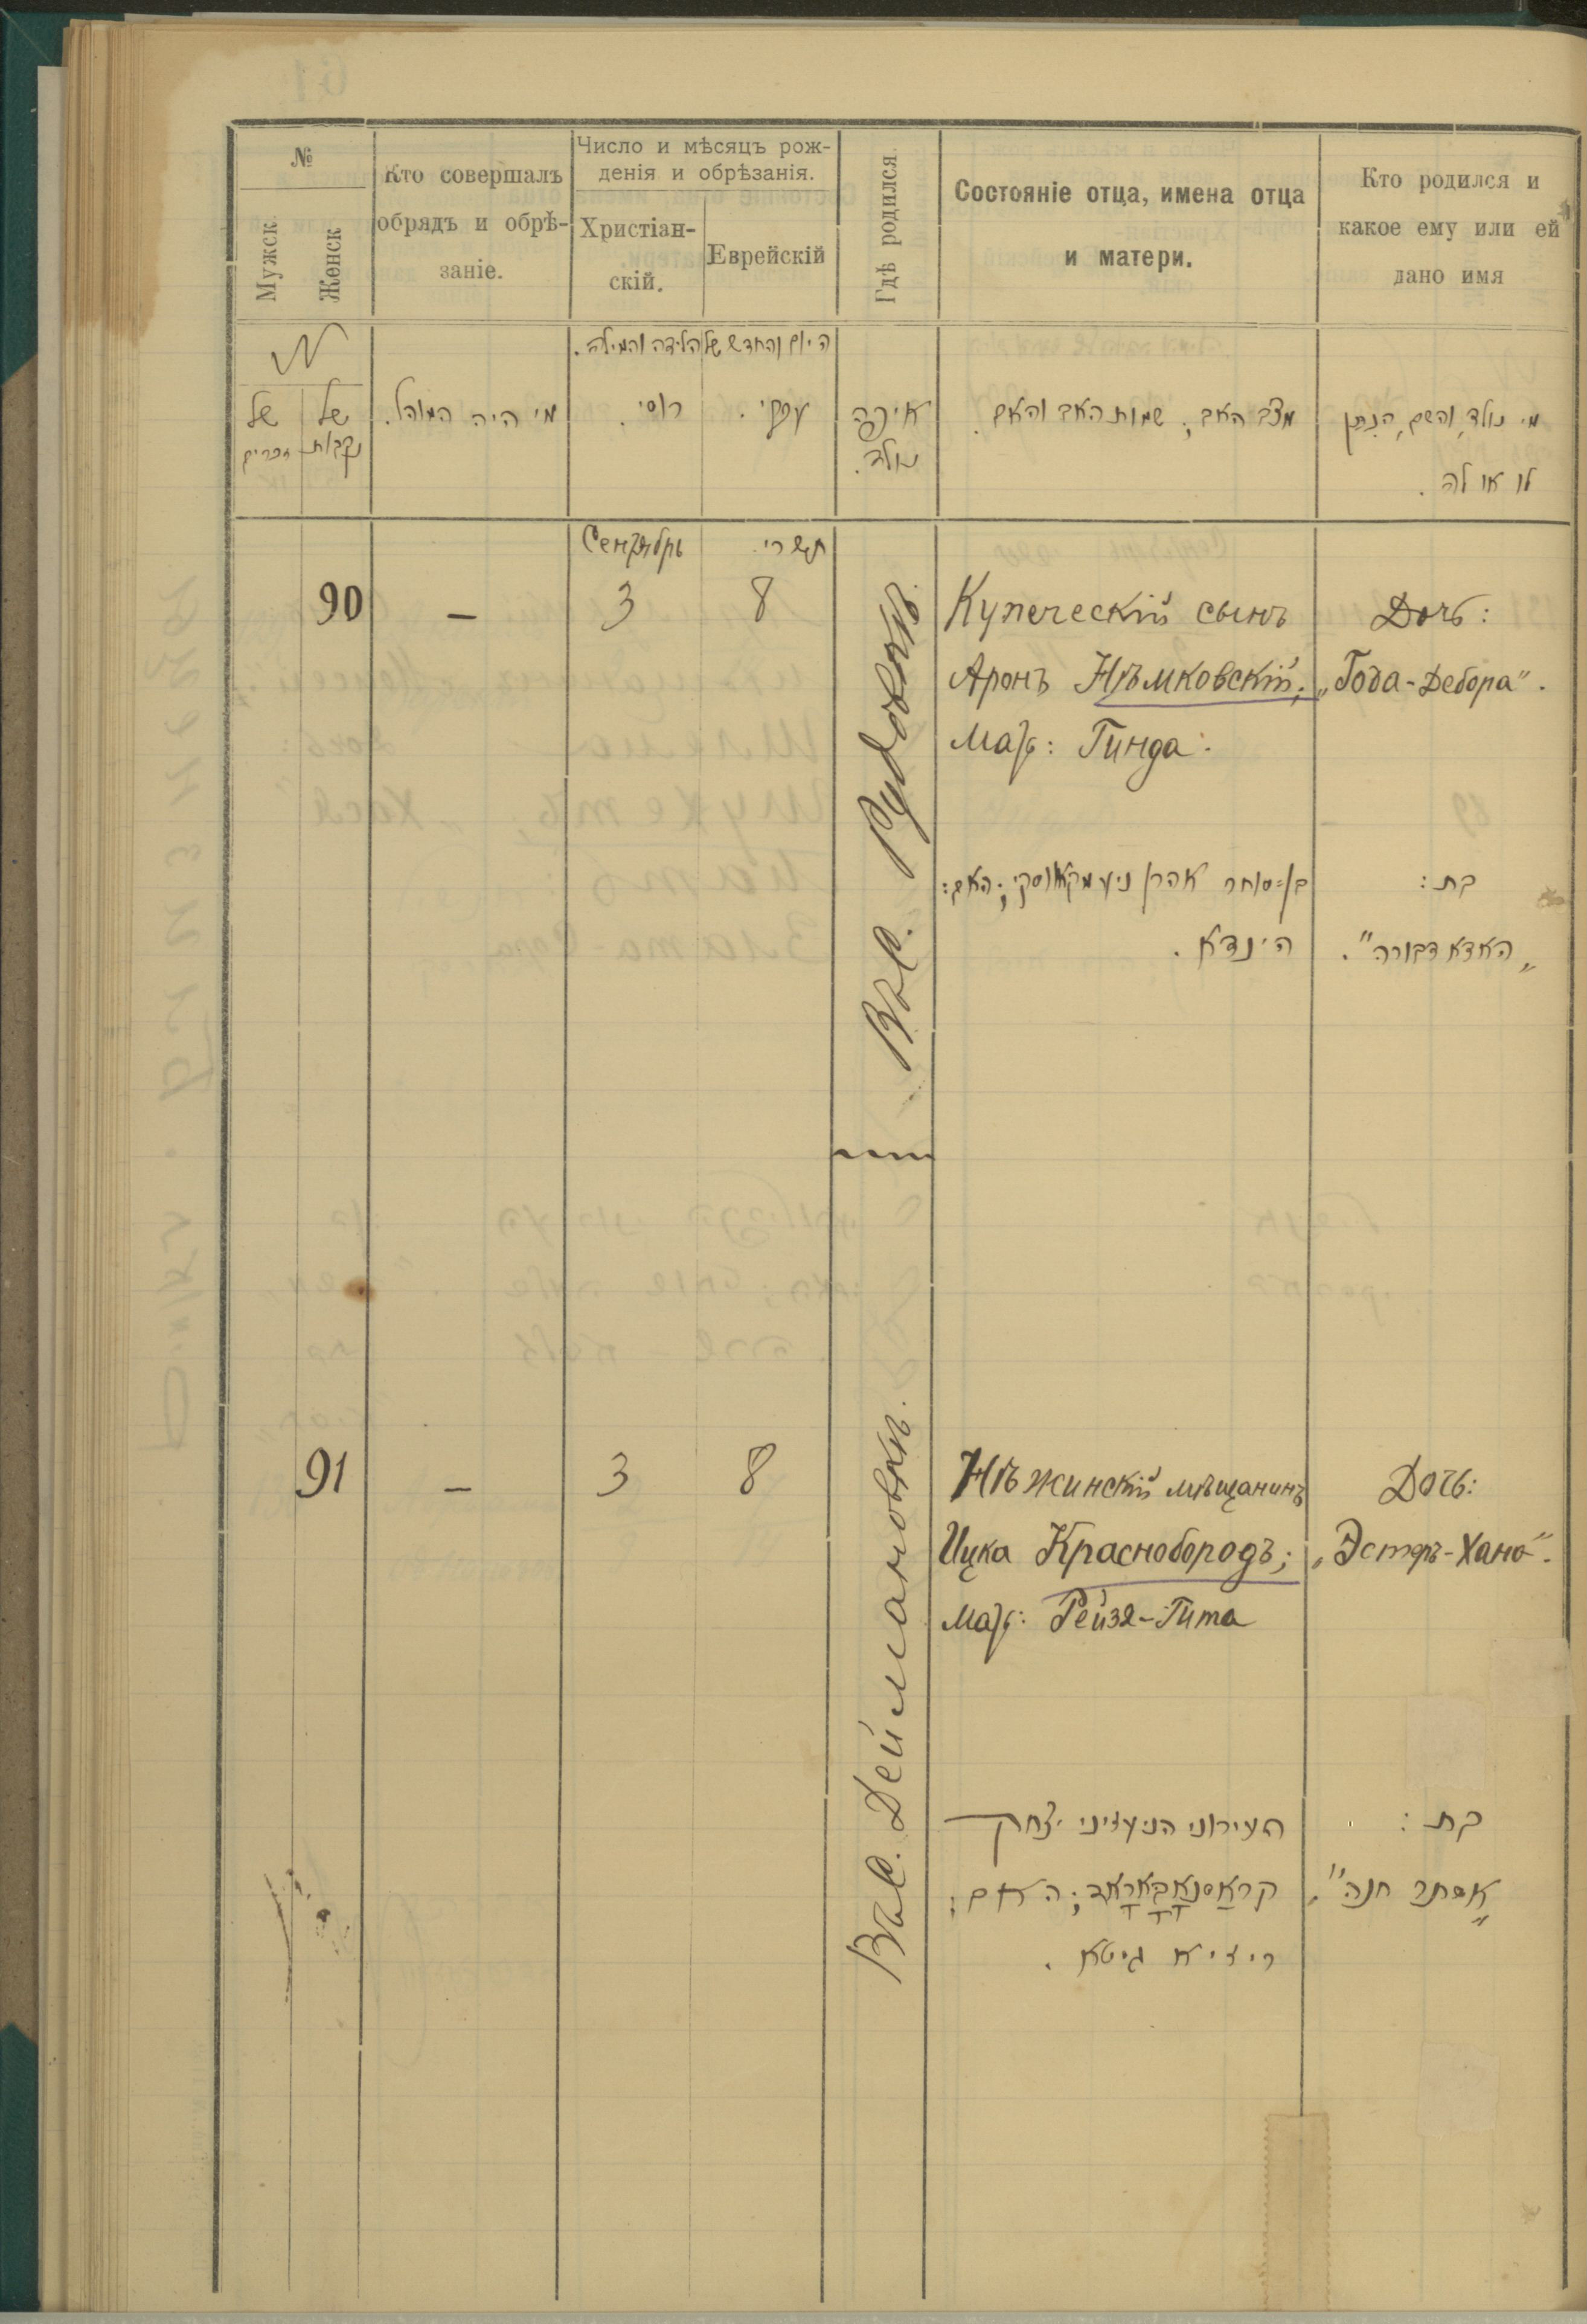 №
Мужск.
Женск
Кто совершалъ
обрядъ и обрѣ-
заніе.
Число и мѣсяцъ рож-
денія и обрѣзанія.
Христіан-
скій.
Еврейскій
Гдѣ родился
Состояніе отца, имена отца
и матери.
Кто родился и
какое ему или ей
дано имя
N
של
זכרים
של
נקבות
מי היה המוהל.
היום והחדש של הלידה והמילה.
רוסי.
עברי.
איפה
נולד.
מצב האב, שמות האב והאם.
מי נולד, והשם הנתן
לו או לה.
Сентябрь
תשרי
90
—
3
8
въ с. Рудовкѣ.
Купеческій сынъ
Аронъ Нѣмковскій;
Мать: Гинда.
בן-סוחר אהרן ניעמקאווסקי; האם:
הינדא.
Дочь:
„Года-Дебора“.
בת:
„האדא דבורה“.
91
—
3
8
въ с. Деймановкѣ.
Нѣжинскій мѣщанинъ
Ицка Краснобородъ;
Мать: Рейзя-Гита
העירוני הניעזיני יצחק
קראסנאבאראד; האם:
ריזיא גיטא.
Дочь:
„Эстеръ-Хана“.
בת:
„אסתר חנה“.